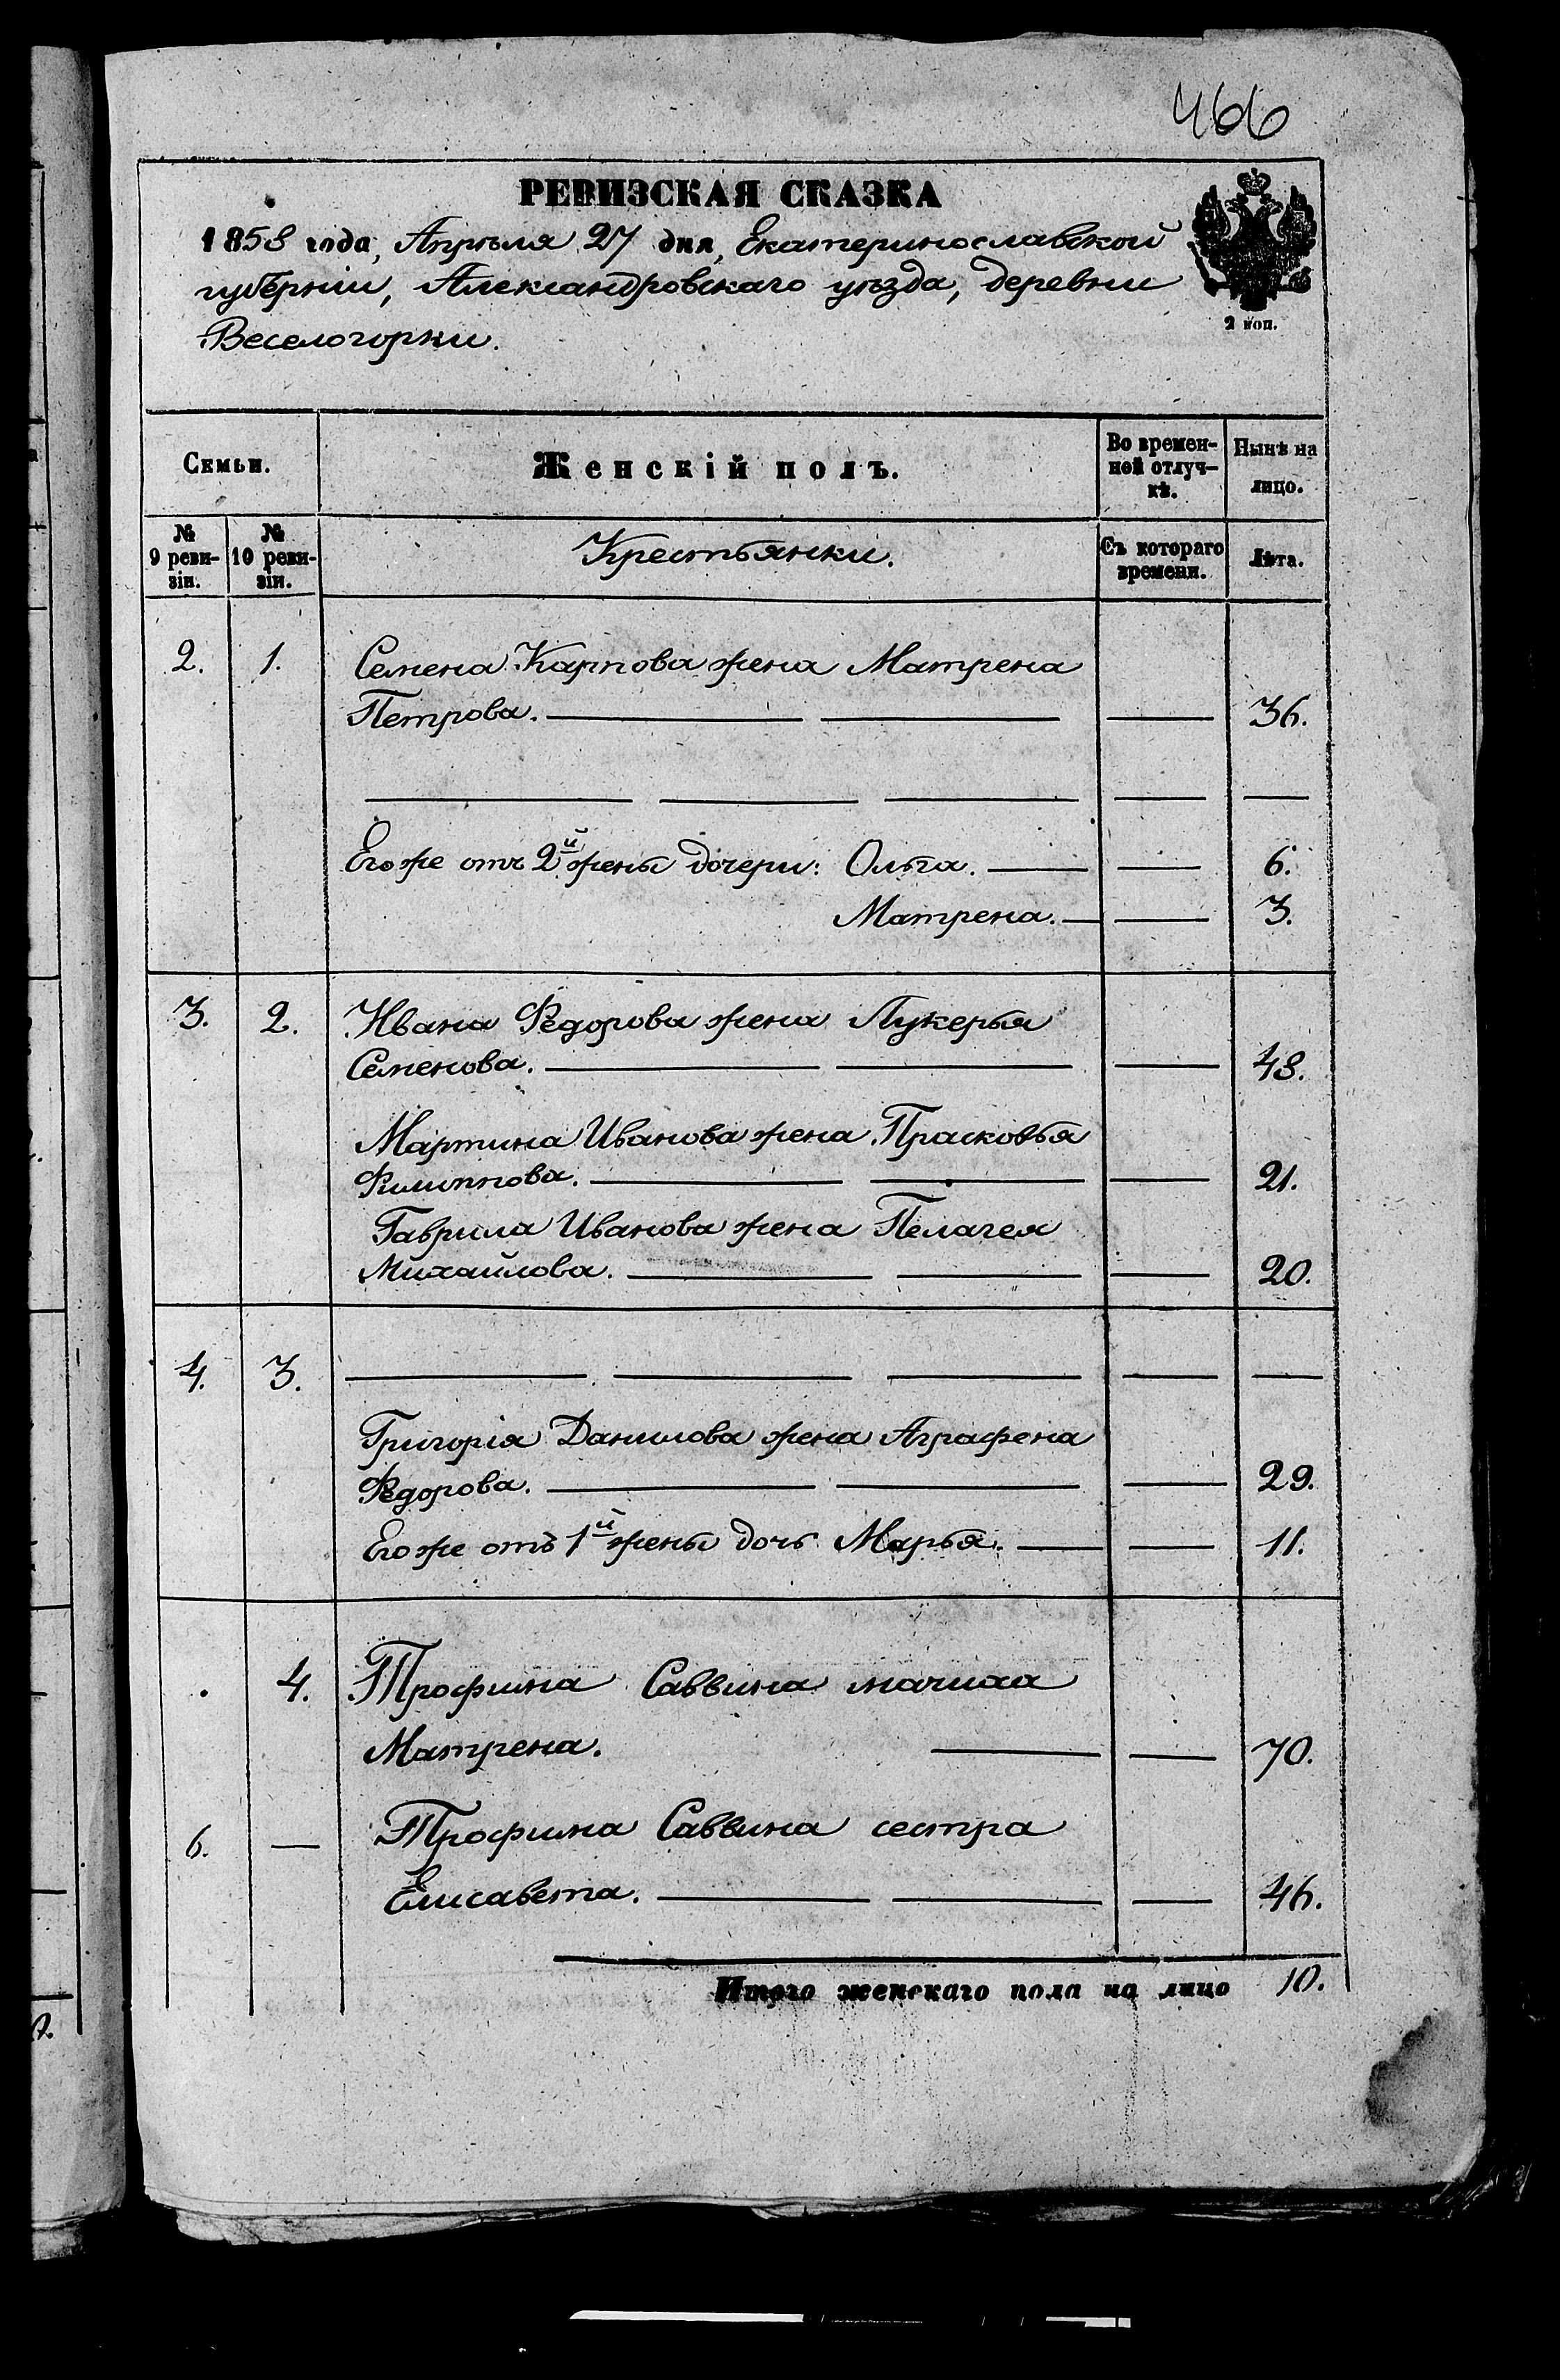 466
РЕВИЗСКАЯ СКАЗКА
1858 года, Апрѣля 27 дня, Екатеринославской
губерніи, Александровскаго уѣзда, деревни
2 коп.
Веселогорки.
Семьи.
Женскій полъ.
Во времен-
ной отлуч-
кѣ.
Нынѣ на
лицо.
№
9 реви-
зіи.
№
10 реви-
зіи.
Крестьянки.
Съ котораго
времени.
Лѣта.
2. 1. Семена Карпова жена Матрена
Петрова. — — — 36.
— — — — —
Его же отъ 2й жены дочери: Ольга. — — 6.
Матрена. — — 3.
3. 2. Ивана Федорова жена Лукерья
Семенова. — — — 48.
Мартина Иванова жена Прасковья
Филиппова. — — — 21.
Гаврила Иванова жена Пелагея
Михайлова. — — — 20.
4. 3. — — — — —
Григорія Данилова жена Аграфена
Федорова. — — — 29.
Его же отъ 1й жены дочь Марья. — — 11.
4. Трофима Саввина мачиха
Матрена. — — 70.
6. — Трофима Саввина сестра
Елисавета. — — — 46.
Итого женскаго пола на лицо 10.